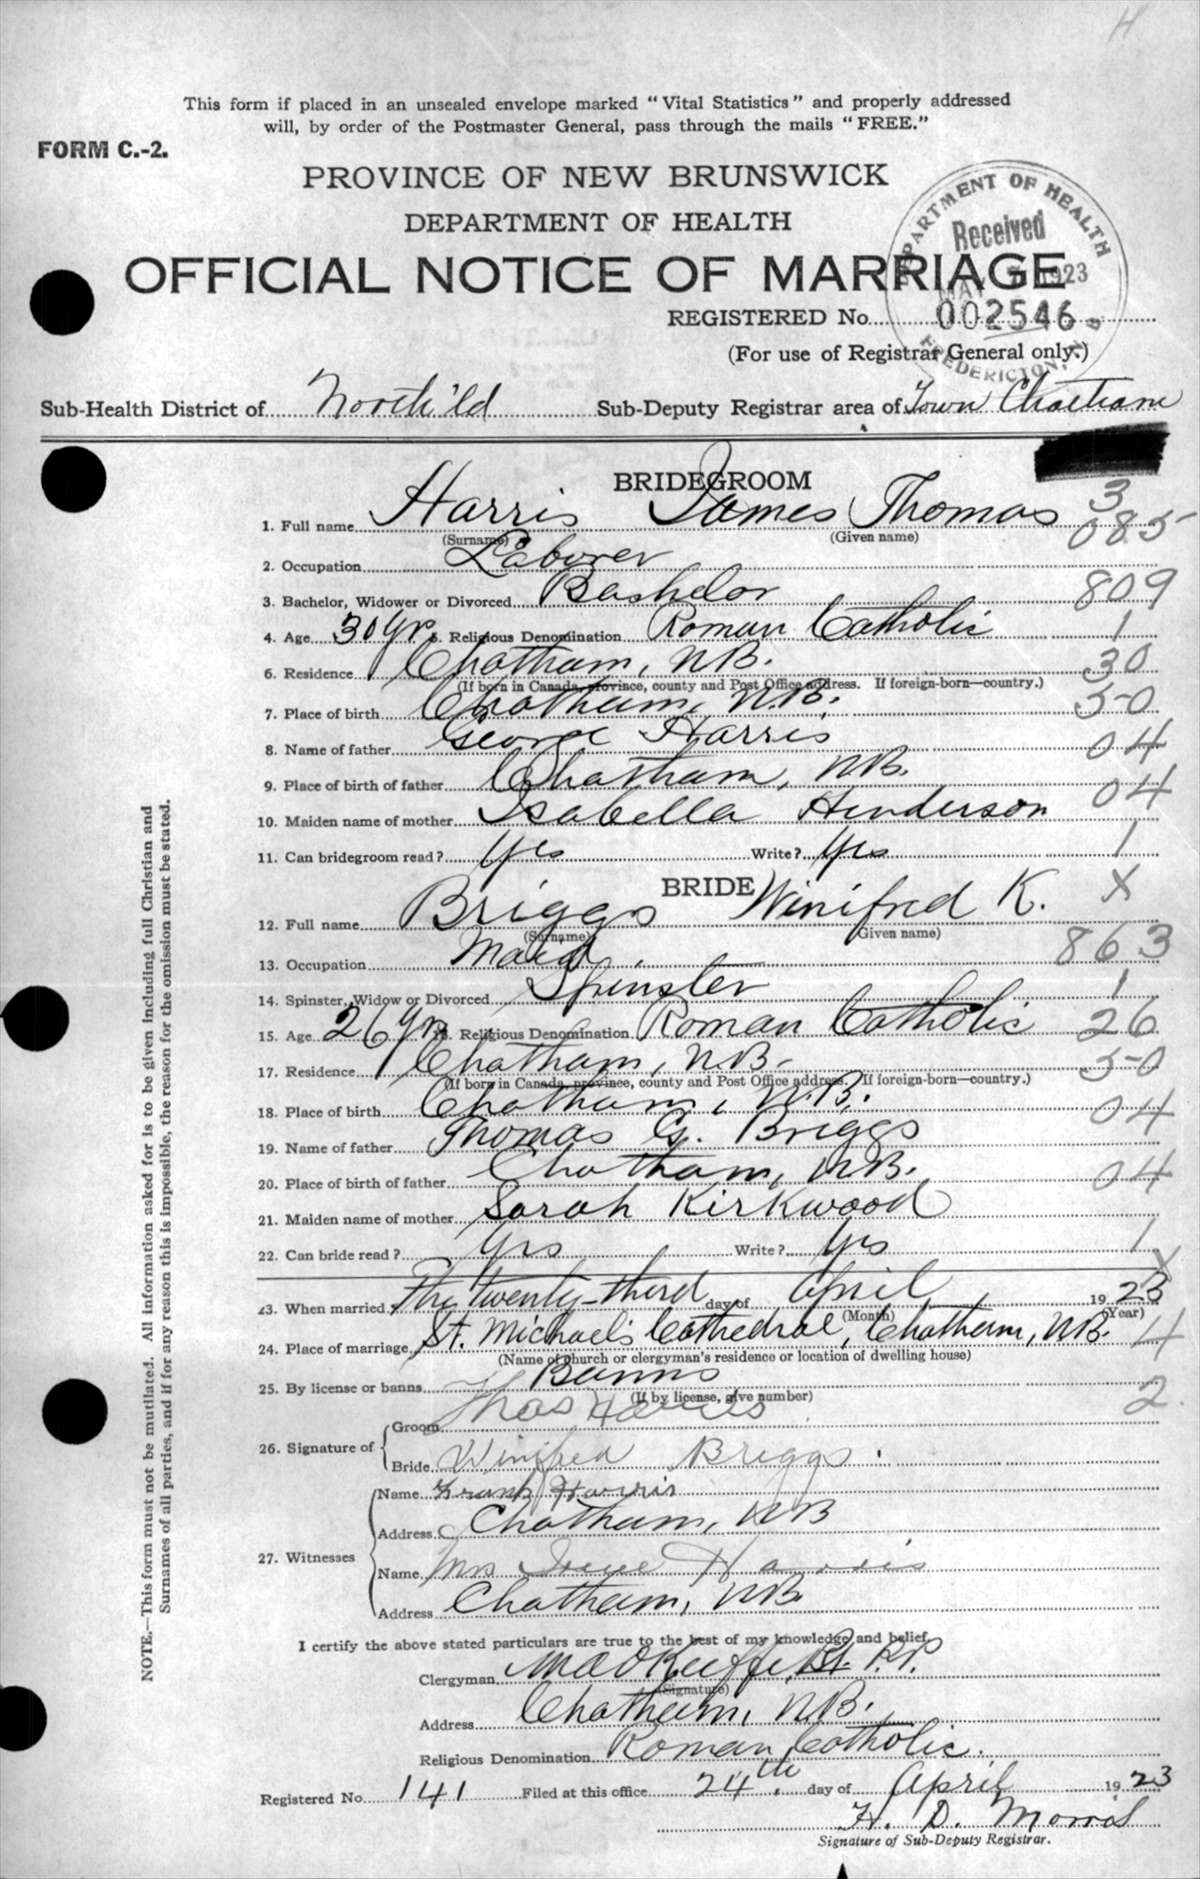 H
This form if placed in an unsealed envelope marked "Vital Statistics" and properly addressed
will, by order of the Postmaster General, pass through the mails "FREE."
FORM C.-2.
PROVINCE OF NEW BRUNSWICK
DEPARTMENT OF HEALTH
OFFICIAL NOTICE OF MARRIAGE
DEPARTMENT OF HEALTH
Received
1923
FREDERICTON, N B
REGISTERED No. 002546
(For use of Registrar General only.)
Sub-Health District of North'ld Sub-Deputy Registrar area of Town Chatham
BRIDEGROOM
3
1. Full name Harris James Thomas 085
(Surname) (Given name)
2. Occupation Laborer
3. Bachelor, Widower or Divorced Bachelor 809
4. Age 30 yr. 5. Religious Denomination Roman Catholic 1
6. Residence Chatham, N.B. 30
(If born in Canada, province, county and Post Office address. If foreign-born—country.)
7. Place of birth Chatham, N.B. 50
8. Name of father George Harris 04
9. Place of birth of father Chatham, N.B. 04
10. Maiden name of mother Isabella Henderson
11. Can bridegroom read? Yes Write? Yes 1
BRIDE X
12. Full name Briggs Winifred K.
(Surname) (Given name)
13. Occupation Maid. 863
14. Spinster, Widow or Divorced Spinster 1
15. Age 26 yr. 16. Religious Denomination Roman Catholic 26
17. Residence Chatham, N.B. 50
(If born in Canada, province, county and Post Office address. If foreign-born—country.)
18. Place of birth Chatham, N.B. 04
19. Name of father Thomas G. Briggs
20. Place of birth of father Chatham, N.B. 04
21. Maiden name of mother Sarah Kirkwood
22. Can bride read? Yes Write? Yes 1
X
23. When married The twenty-third day of April 1923
(Month) (Year)
24. Place of marriage St. Michael's Cathedral, Chatham, N.B. 4
(Name of church or clergyman's residence or location of dwelling house)
25. By license or banns Banns 2
(If by license, give number)
26. Signature of
Groom Thos Harris
Bride Winifred Briggs
27. Witnesses
Name Frank Harris
Address Chatham, N.B
Name Mrs Irene Harris
Address Chatham, N.B.
I certify the above stated particulars are true to the best of my knowledge and belief.
Clergyman M A O'Keeffe, P.P.
(Signature)
Address Chatham, N.B.
Religious Denomination Roman Catholic.
Registered No. 141 Filed at this office 24th. day of April 1923
H. D. Morris
Signature of Sub-Deputy Registrar.
NOTE.—This form must not be mutilated. All information asked for is to be given including full Christian and
Surnames of all parties, and if for any reason this is impossible, the reason for the omission must be stated.